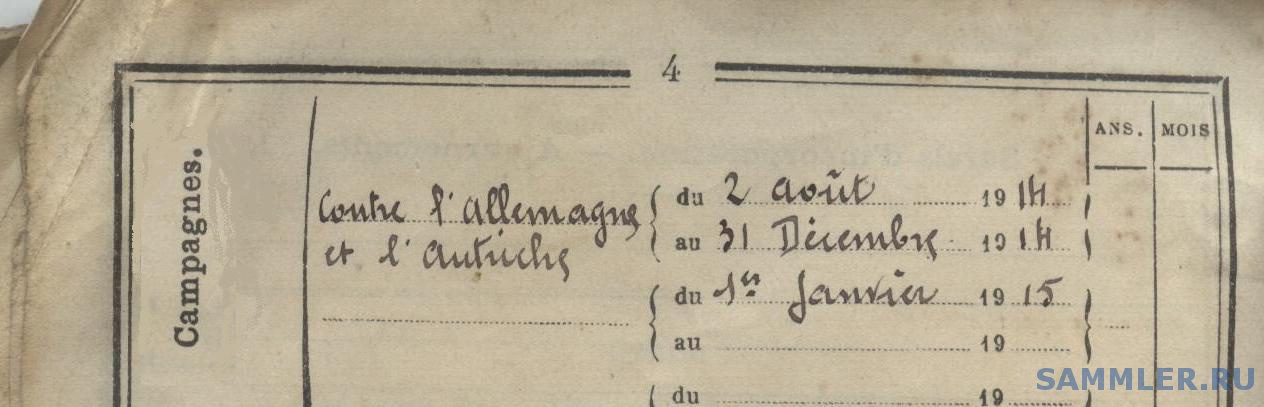 4
Campagnes.
ANS. MOIS
Contre l'Allemagne
et l'Autriche
du 2 Août 1914
au 31 Décembre 1914
du 1er Janvier 1915
au 19
du 19
SAMMLER.RU